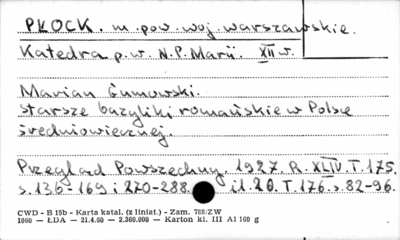 PŁOCK. m. pow. woj. warszawskie.
Katedra p.w. N.P. Marii. XII w.
Marian Gumowski.
Starsze bazyliki romańskie w Polsce
średniowiecznej.
Przegląd Powszechny. 1927. R. XLIV. T. 175.
s. 136-169 i 270-288. il. 20. T. 176. s. 82-96.
CWD - B 15b - Karta katal. (z liniat.) - Zam. 788/ZW
1060 - ŁDA - 21.4.60 - 2.360.000 - Karton kl. III A1 160 g